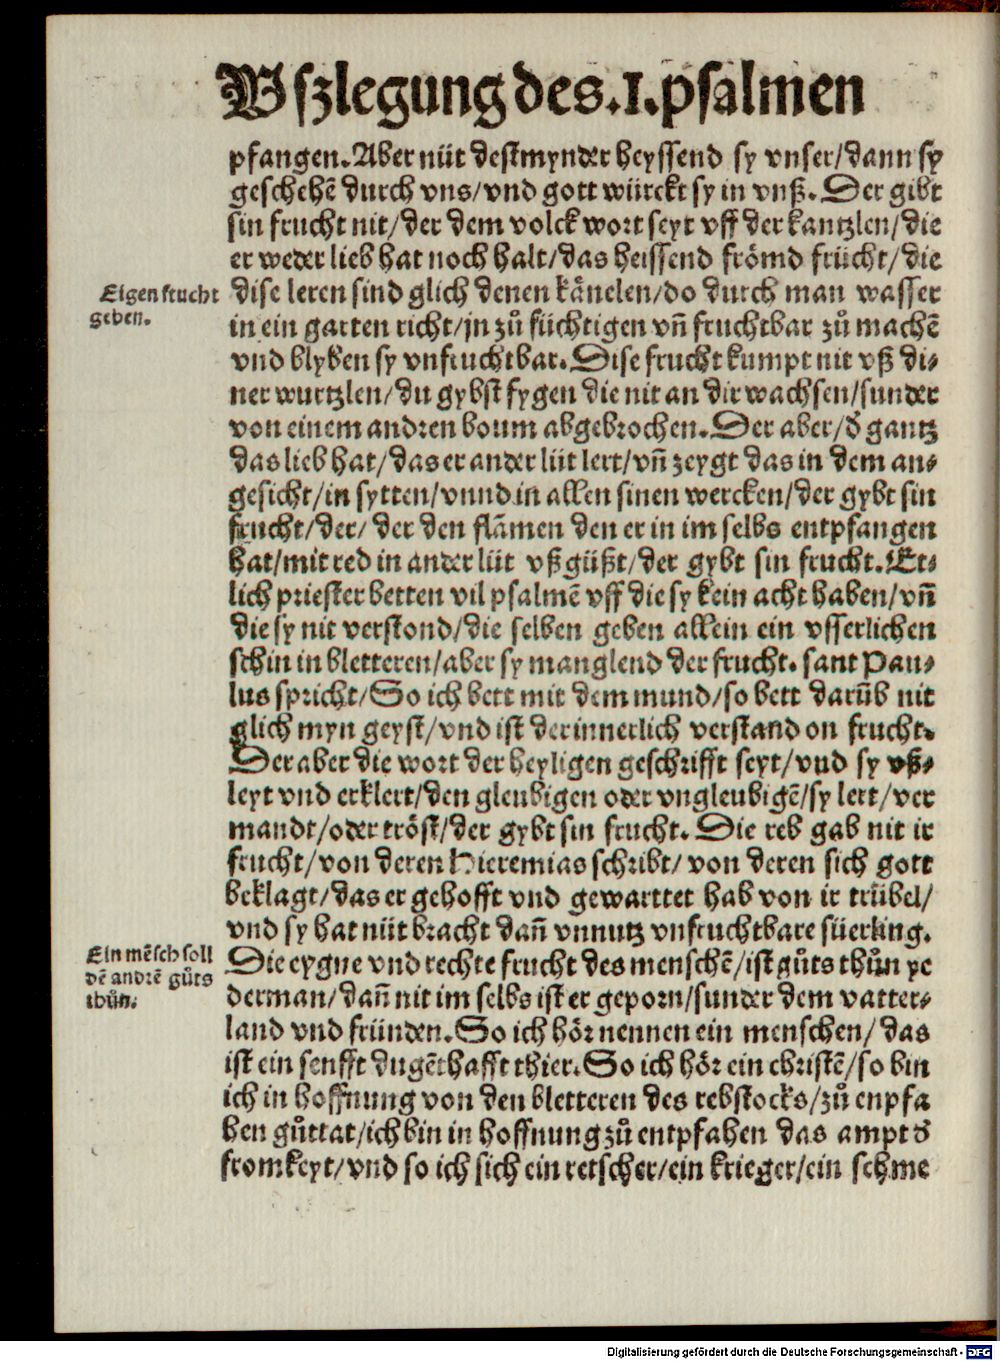 Vſzlegung des .I. pſalmen
pfangen. Aber nüt deſtmynder heyſſend ſy vnſer/ dann ſy
geſchehē durch vns/ vnd gott würckt ſy in vnß. Der gibt
ſin frucht nit/ der dem volck wort ſeyt vff der kantzlen/ die
er weder lieb hat noch halt/ das heiſſend frömd frücht/ die
Eigen frucht
geben.
diſe leren ſind glich denen känelen/ do durch man waſſer
in ein garten richt/ jn zů füchtigen vn̄ fruchtbar zů machē
vnd blyben ſy vnfruchtbar. Diſe frucht kumpt nit vß di⸗
ner wurtzlen/ du gybſt fygen die nit an dir wachſen/ ſunder
von einem andren boum abgebrochen. Der aber/ d̕ gantz
das lieb hat/ das er ander lüt lert/ vn̄ zeygt das in dem an⸗
geſicht/ in ſytten/ vnnd in allen ſinen wercken/ der gybt ſin
frucht/ der/ der den flāmen den er in im ſelbs entpfangen
hat/ mit red in ander lüt vß güßt/ der gybt ſin frucht. Et⸗
lich prieſter betten vil pſalmē vff die ſy kein acht haben/ vn̄
die ſy nit verſtond/ die ſelben geben allein ein vſſerlichen
ſchin in bletteren/ aber ſy manglend der frucht. ſant Pau⸗
lus ſpricht/ So ich bett mit dem mund/ ſo bett darūb nit
glich myn geyſt/ vnd iſt der innerlich verſtand on frucht.
Der aber die wort der heyligen geſchrifft ſeyt/ vnd ſy vß⸗
leyt vnd erklert/ den gleubigen oder vngleubigē/ ſy lert/ ver
mandt/ oder tröſt/ der gybt ſin frucht. Die reb gab nit ir
frucht/ von deren Hieremias ſchribt/ von deren ſich gott
beklagt/ das er gehofft vnd gewarttet hab von ir trübel/
vnd ſy hat nüt bracht dan̄ vnnutz vnfruchtbare ſüerling.
Ein mēſch ſoll
dē andrē gůts
thůn.
Die eygne vnd rechte frucht des menſchē/ iſt gůts thůn ye
derman/ dan̄ nit im ſelbs iſt er geporn/ ſunder dem vatter⸗
land vnd fründen. So ich hör nennen ein menſchen/ das
iſt ein ſenfft dugēthafft thier. So ich hör ein chriſtē/ ſo bin
ich in hoffnung von den bletteren des rebſtocks/ zů enpfa
hen gůttat/ ich bin in hoffnung zů entpfahen das ampt d̕
fromkeyt/ vnd ſo ich ſich ein retſcher/ ein krieger/ ein ſchme
Digitalisierung gefördert durch die Deutsche Forschungsgemeinschaft - DFG